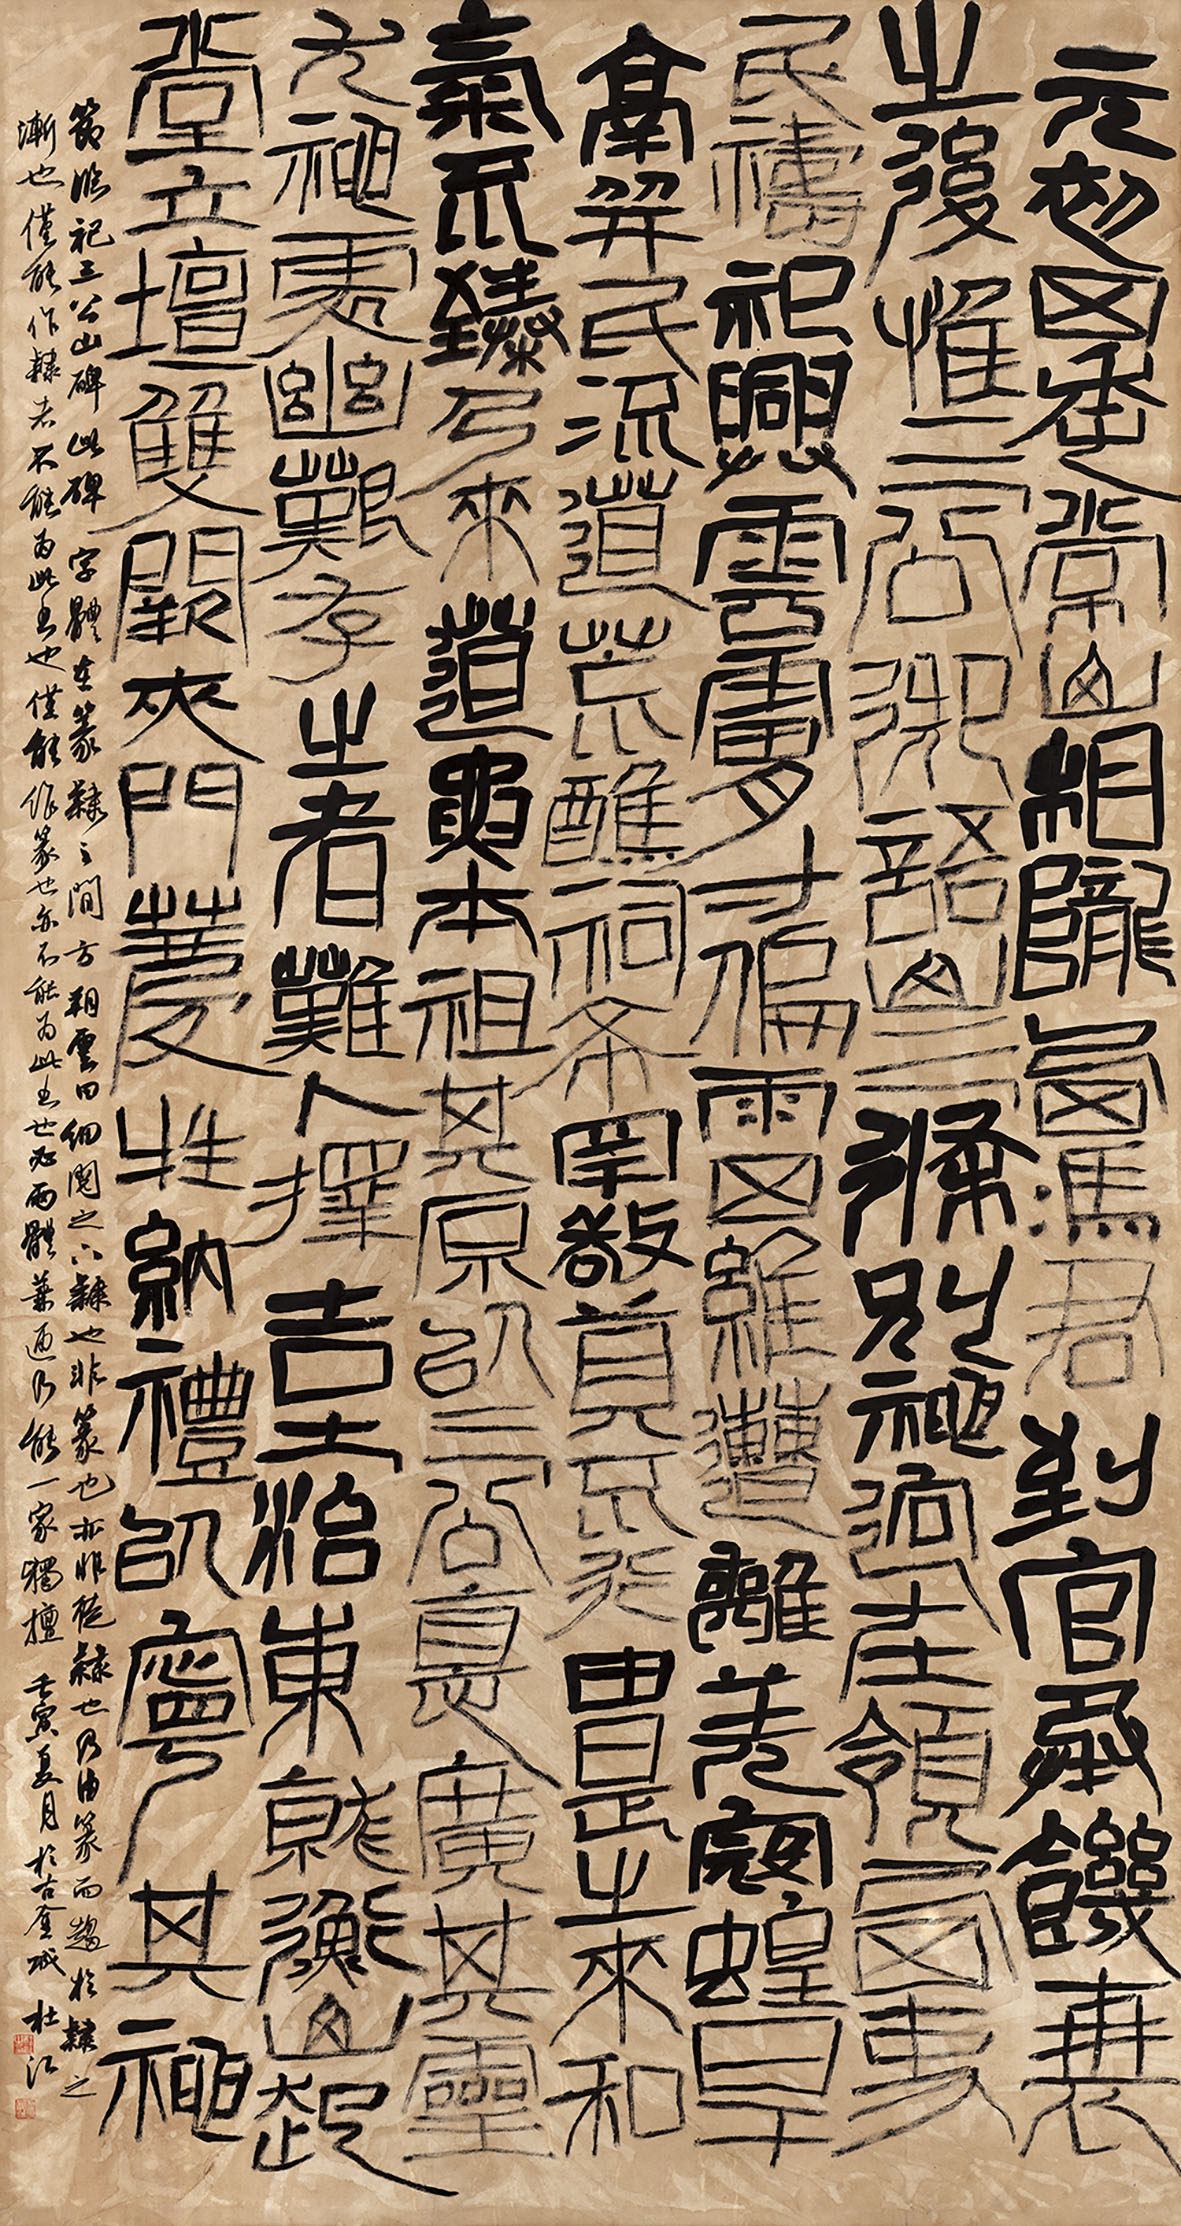 元初四年常山相隴西馮君到官承饑衰
之後惟三公御語山三條別神迥在領西吏
民禱祀興雲膚寸偏雨四維遭離羌寇蝗旱
鬲并民流道荒醮祠希罕敬奠不行由是之來和
氣不臻乃來道要本祖其原以三公德廣其靈
尤神處幽艱存之者難卜擇吉土治東就衡山起
堂立壇雙闕夾門薦牲納禮以寧其神
節臨祀三公山碑此碑字體在篆隸之間方朔雲曰細閱之下隸也非篆也亦非徒隸也乃由篆而趨於隸之
漸也僅能作隸者不能為此書也僅能作篆也亦不能為此書也必兩體兼通乃能一家獨擅 壬寅夏月於古金城 杜江